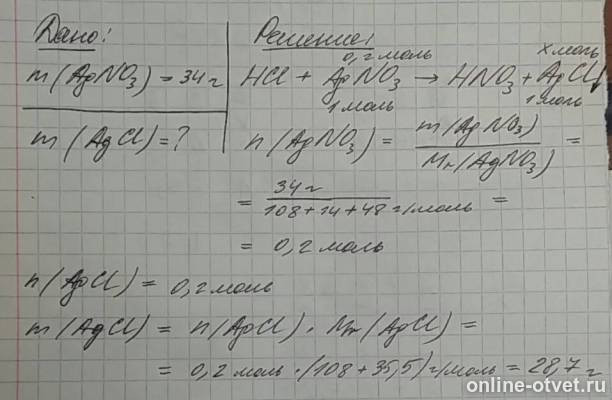 Дано:
m(AgNO3) = 34 г
m(AgCl) = ?
Решение:
0,2 моль x моль
HCl + AgNO3 → HNO3 + AgCl↓
1 моль 1 моль
n(AgNO3) = m(AgNO3) / Mr(AgNO3) =
= 34 г / 108+14+48 г/моль =
= 0,2 моль
n(AgCl) = 0,2 моль
m(AgCl) = n(AgCl) · Mr(AgCl) =
= 0,2 моль · (108 + 35,5) г/моль = 28,7 г
online-otvet.ru